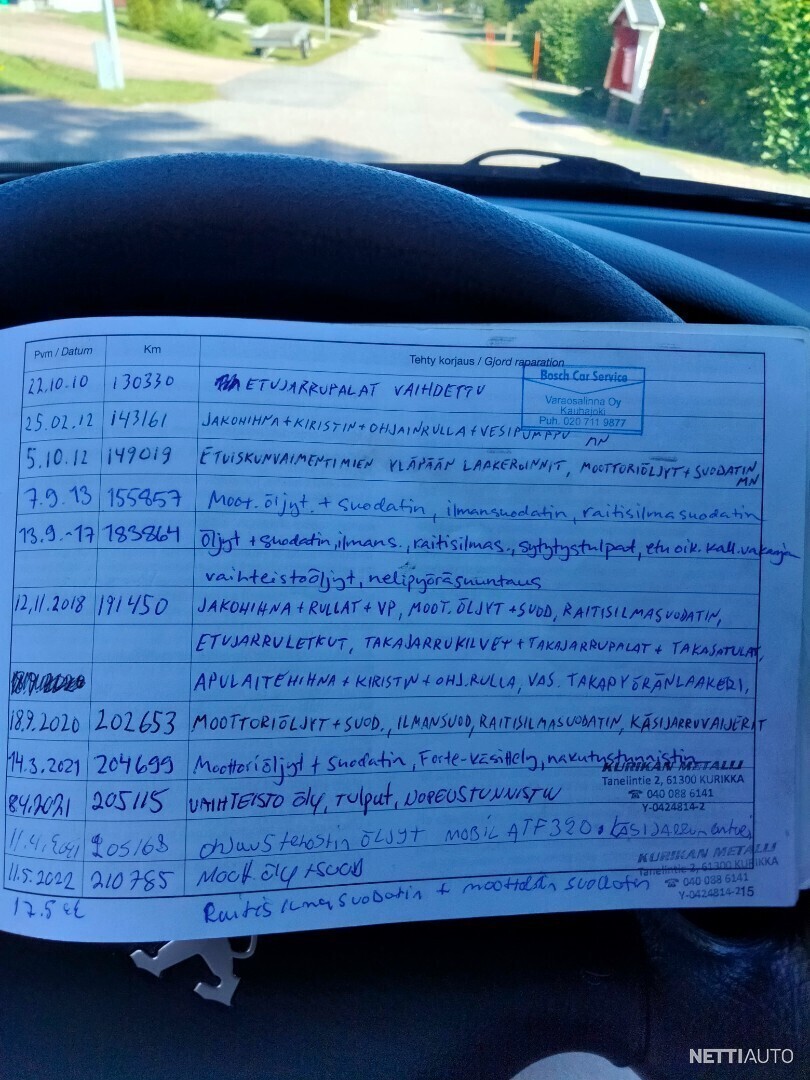 Pvm / Datum Km Tehty korjaus / Gjord reparation
22.10.10 130330 ETUJARRUPALAT VAIHDETTU
Bosch Car Service
Varaosalinna Oy
Kauhajoki
Puh. 020 711 9877
25.02.12 143161 JAKOHIHNA + KIRISTIN + OHJAINRULLA + VESIPUMPPU MN
5.10.12 149019 ETUISKUNVAIMENTIMIEN YLÄPÄÄN LAAKEROINNIT, MOOTTORIÖLJYT + SUODATIN MN
7.9.13 155857 Moot. öljyt. + suodatin, ilmansuodatin, raitisilmasuodatin
13.9.-17 183864 Öljyt + suodatin, ilmans., raitisilmas., sytytystulpat, etu oik. kall.vakaaja
vaihteistoöljyt, nelipyöräsuuntaus
12.11.2018 191450 JAKOHIHNA + RULLAT + VP, MOOT. ÖLJYT + SUOD, RAITISILMASUODATIN,
ETUJARRULETKUT, TAKAJARRUKILVET + TAKAJARRUPALAT + TAKASATULAT,
APULAITEHIHNA + KIRISTIN + OHJ.RULLA, VAS. TAKAPYÖRÄNLAAKERI,
18.9.2020 202653 MOOTTORIÖLJYT + SUOD., ILMANSUOD, RAITISILMASUODATIN, KÄSIJARRUVAIJERIT
14.3.2021 204699 Moottoriöljyt + Suodatin, Forte-käsittely, nakutustunnistin
KURIKAN METALLI
Tanelintie 2, 61300 KURIKKA
☎ 040 088 6141
Y-0424814-2
8.4.2021 205115 VAIHTEISTO ÖLJY, TULPUT, NOPEUSTUNNISTIN
205168 OHJAUSTEHOSTIN ÖLJYT MOBIL ATF 320
11.5.2022 210785 Moot. öljy + suod
KURIKAN METALLI
Tanelintie 2, 61300 KURIKKA
☎ 040 088 6141
Y-0424814-2
15
17.5 Raitis ilmasuodatin + moottorin suodatin
NETTIAUTO